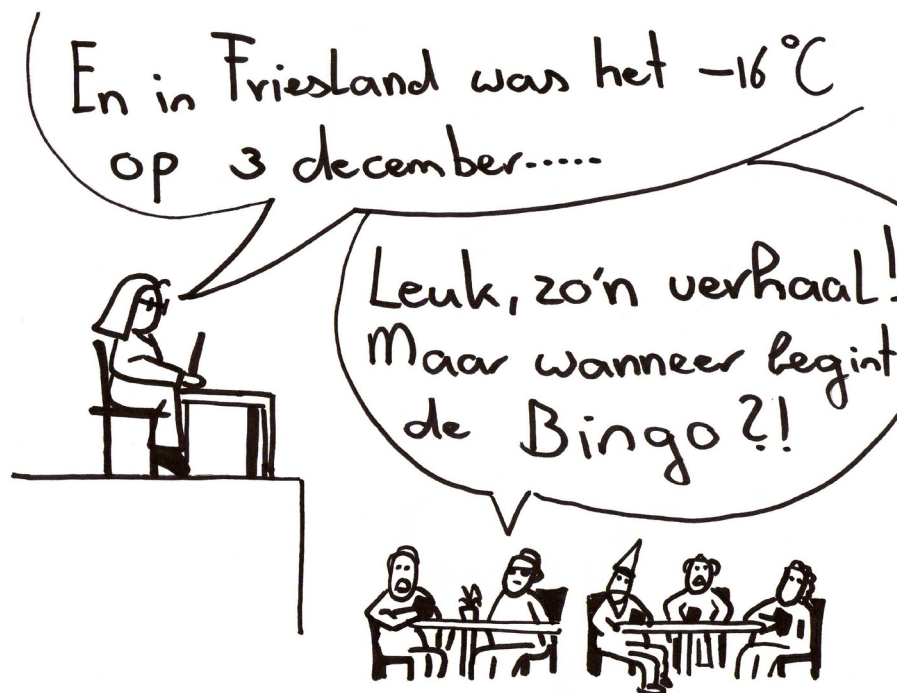 En in Friesland was het -16°C
op 3 december.....
Leuk, zo'n verhaal!
Maar wanneer begint
de Bingo?!